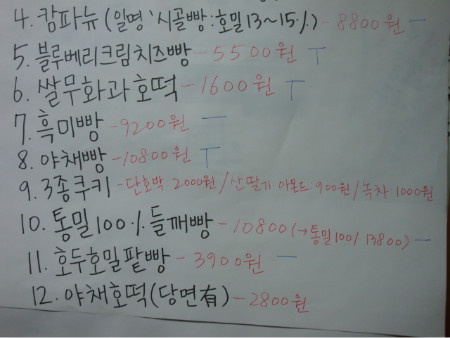 4. 캄파뉴 (일명 '시골빵: 호밀 13~15%) - 8800원 -
5. 블루베리크림치즈빵 - 5500원 T
6. 쌀무화과호떡 - 1600원 T
7. 흑미빵 - 9200원 -
8. 야채빵 - 10800원 T
9. 3종쿠키 - 단호박 2000원 / 산딸기 아몬드 900원 / 녹차 1000원
10. 통밀100% 들깨빵 - 10800 (→통밀100% 13800) -
11. 호두호밀팥빵 - 3900원 -
12. 야채호떡(당면有) - 2800원